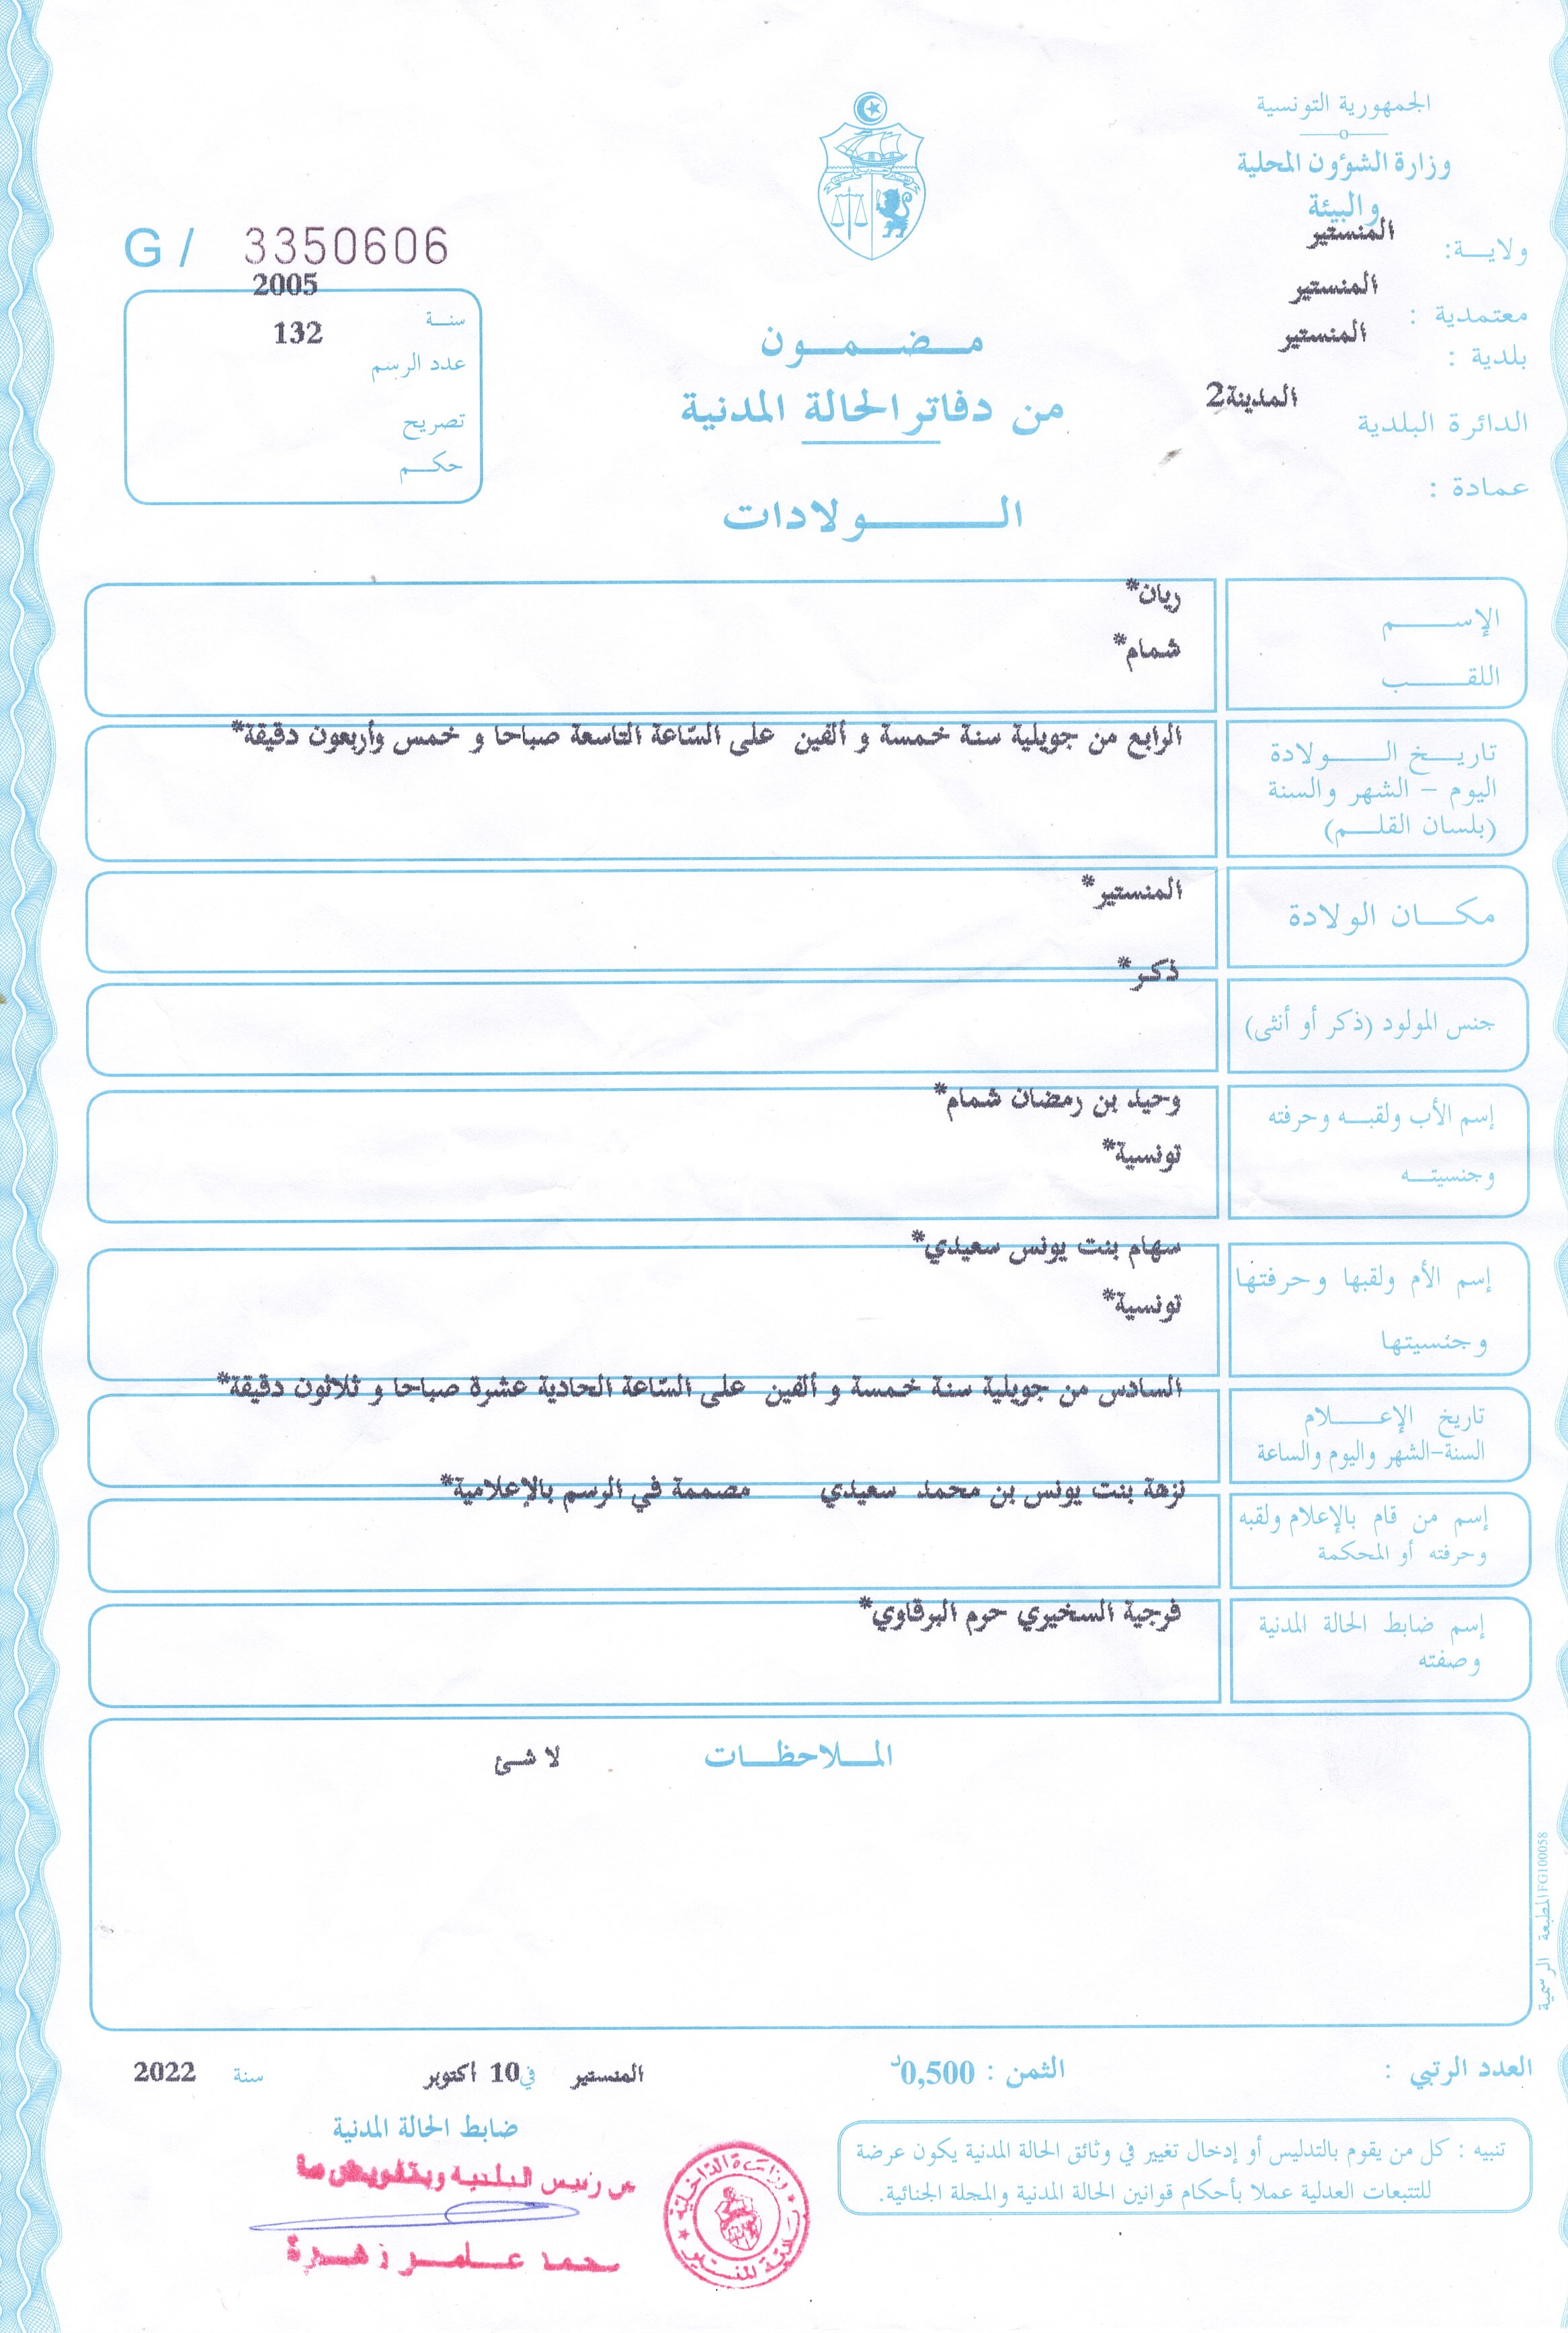 الجمهورية التونسية
وزارة الشؤون المحلية
والبيئة
ولايـــة: المنستير
معتمدية : المنستير
بلدية : المنستير
الدائرة البلدية المدينة2
عمادة :
مـــضـــمـــون
من دفاتر الحالة المدنية
الـــــولادات
G / 3350606
سنـــة 2005
عدد الرسم 132
تصريح
حكـــم
الإســـــم ريان*
اللقـــــب شمام*
تاريـــخ الـــــولادة
اليوم – الشهر والسنة
(بلسان القلـــم)
الرابع من جويلية سنة خمسة و ألفين على السّاعة التاسعة صباحا و خمس وأربعون دقيقة*
مكـــان الولادة
المنستير*
جنس المولود (ذكر أو أنثى)
ذكر*
إسم الأب ولقبـــه وحرفته
وجنسيتـــه
وحيد بن رمضان شمام*
تونسية*
إسم الأم ولقبها وحرفتها
وجنسيتها
سهام بنت يونس سعيدي*
تونسية*
تاريخ الإعـــــلام
السنة-الشهر واليوم والساعة
السادس من جويلية سنة خمسة و ألفين على السّاعة الحادية عشرة صباحا و ثلاثون دقيقة*
إسم من قام بالإعلام ولقبه
وحرفته أو المحكمة
نزهة بنت يونس بن محمد سعيدي مصممة في الرسم بالإعلامية*
إسم ضابط الحالة المدنية
وصفته
فرجية السخيري حرم البرقاوي*
المـــلاحظـــات لا شئ
المطبعة الرسمية FG100058
العدد الرتبي :
الثمن : 0,500د
المنستير في 10 اكتوبر سنة 2022
ضابط الحالة المدنية
عن رئيس البلدية وبتفويض منه
محمد عـــامـــر زهـــرة
تنبيه : كل من يقوم بالتدليس أو إدخال تغيير في وثائق الحالة المدنية يكون عرضة
للتتبعات العدلية عملا بأحكام قوانين الحالة المدنية والمجلة الجنائية.
وزارة الداخلية
بلدية المنستير